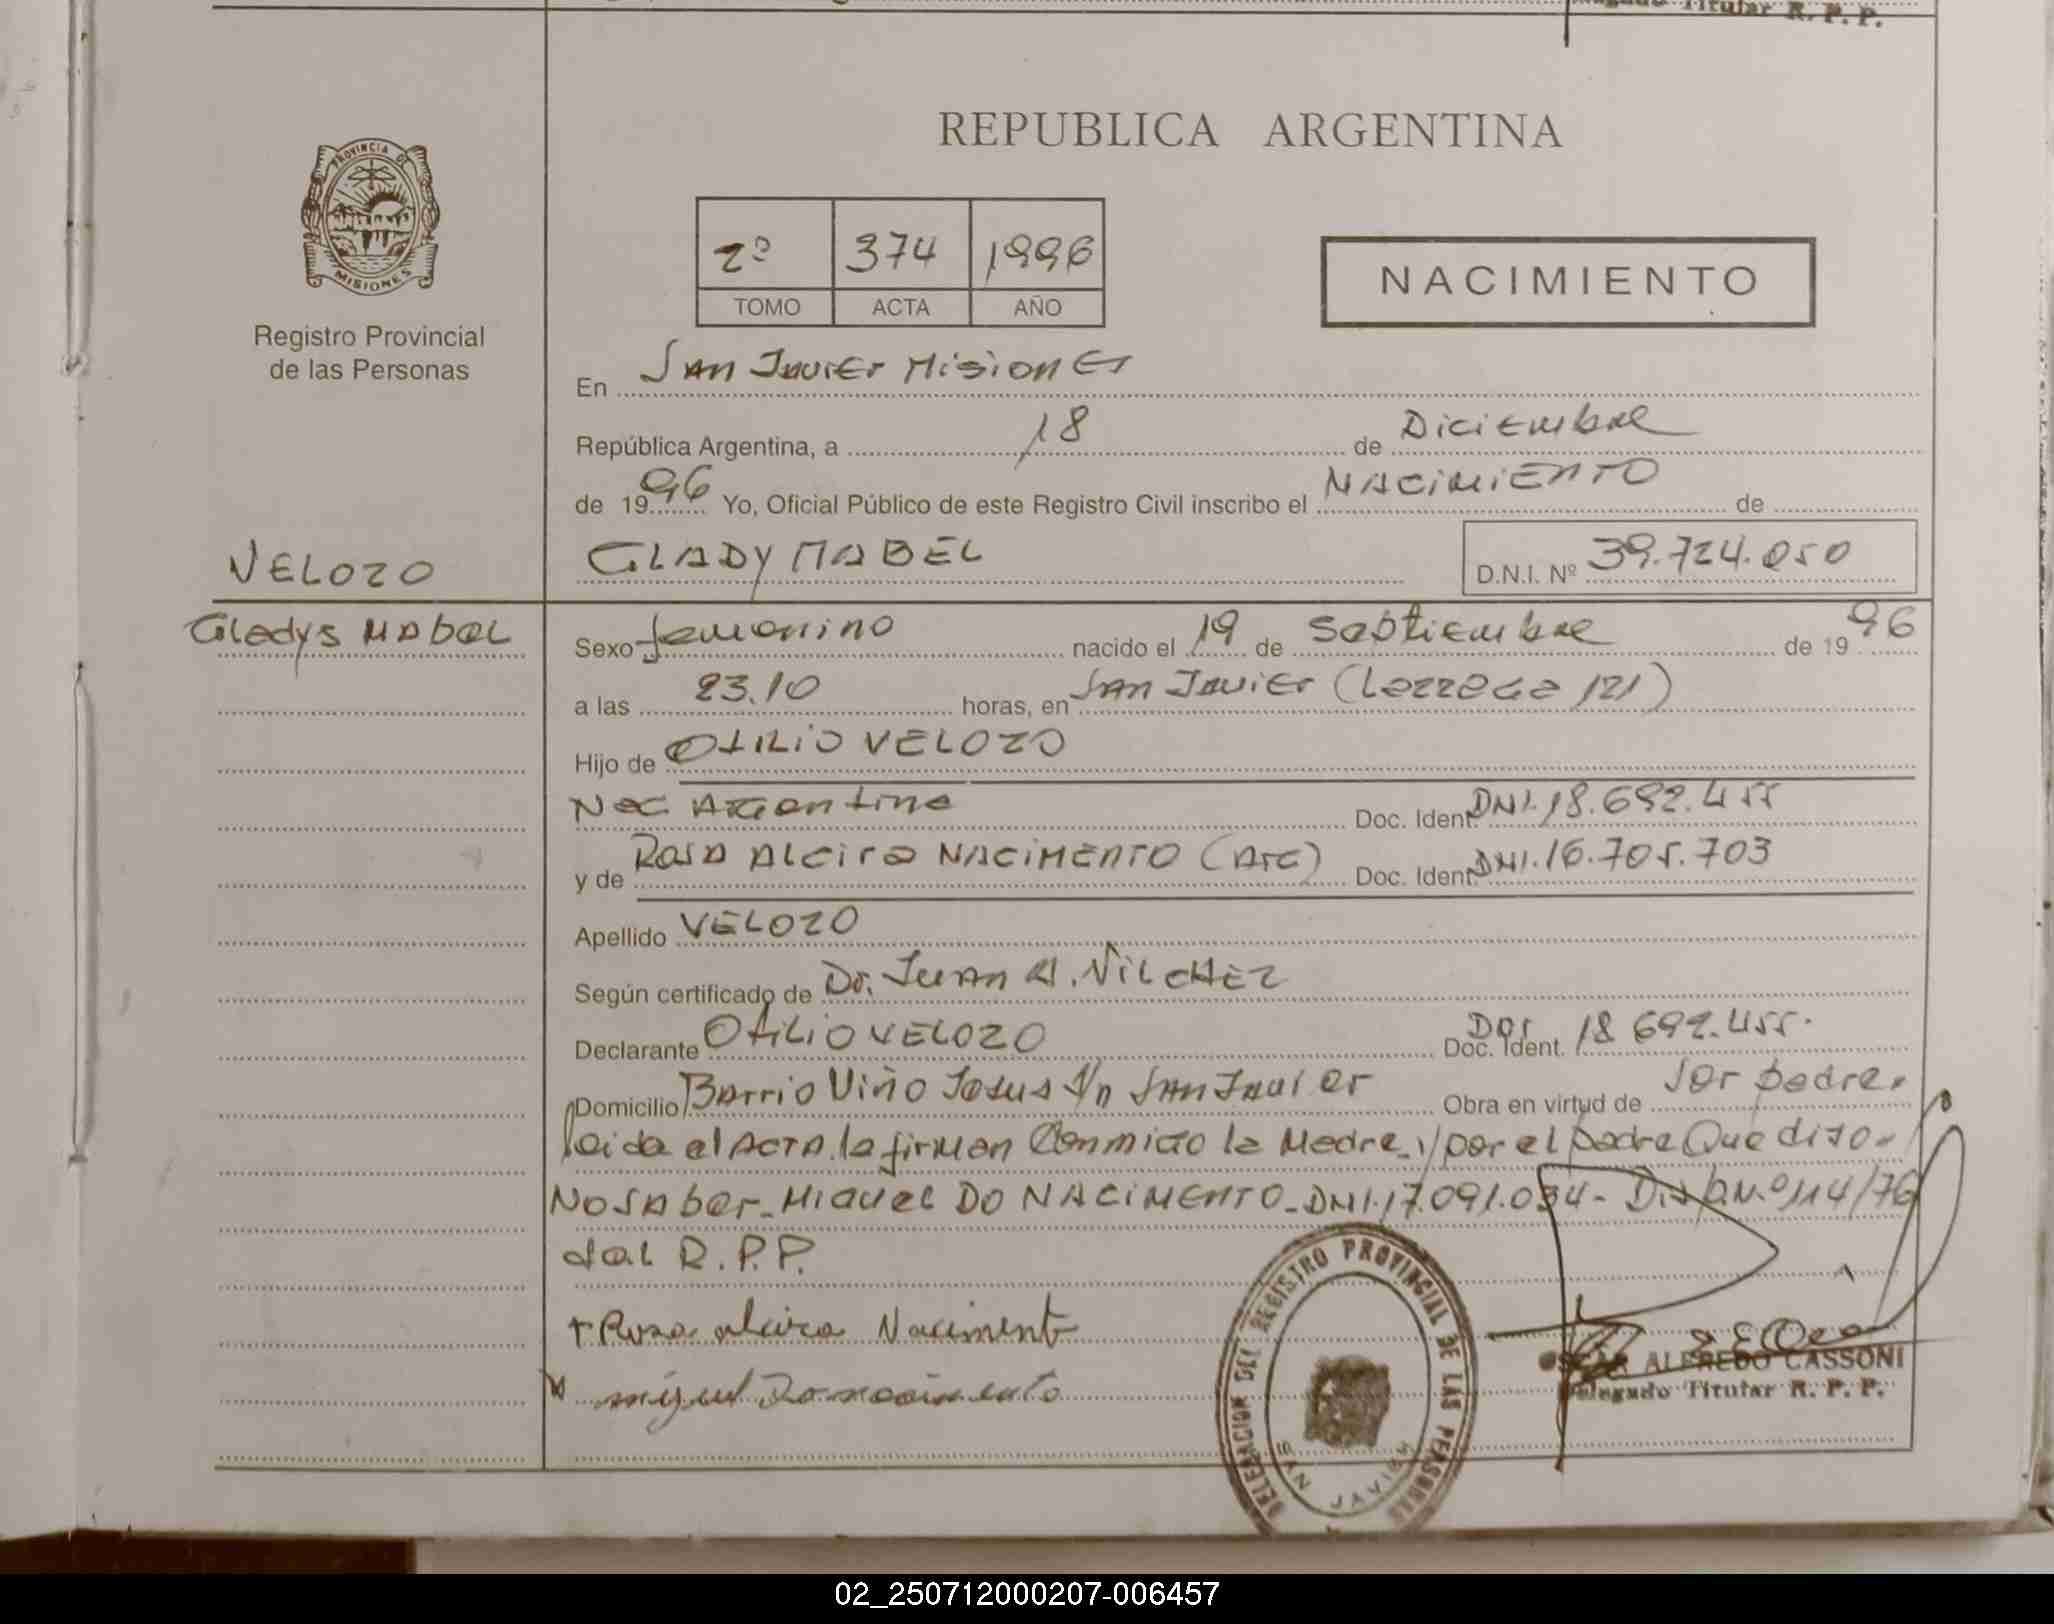 Titular R. P. P.
REPUBLICA ARGENTINA
PROVINCIA DE
MISIONES
Registro Provincial
de las Personas
2º 374 1996
TOMO ACTA AÑO
NACIMIENTO
En San Javier Misiones
República Argentina, a 18 de Diciembre
de 1996 Yo, Oficial Público de este Registro Civil inscribo el NACIMIENTO de
VELOZO
GLADY MABEL D.N.I. Nº 39.724.050
Gladys Mabel
Sexo femenino nacido el 19 de Septiembre de 1996
a las 23.10 horas, en San Javier (Larrea 121)
Hijo de OTILIO VELOZO
Nac Argentina Doc. Ident. DNI.18.692.455
y de ROSA Alcira NACIMENTO (Arg) Doc. Ident. DNI.16.705.703
Apellido VELOZO
Según certificado de Dr. Juan A. Vilchez
Declarante OTILIO VELOZO Doc. Ident. 18 692.455.
Domicilio Barrio Viño Jesus s/n San Javier Obra en virtud de ser padre.
leida el ACTA la firman Conmigo la Madre y por el padre Que dijo-
No saber- Miguel DO NACIMENTO- DNI.17.091.034- Disp.N.º114/76
del R.P.P.
+ Rosa alcira Naciment
miguel Do nacimento
DELEGACION DEL REGISTRO PROVINCIAL DE LAS PERSONAS
SAN JAVIER
OSCAR ALFREDO CASSONI
Delegado Titular R. P. P.
02_250712000207-006457